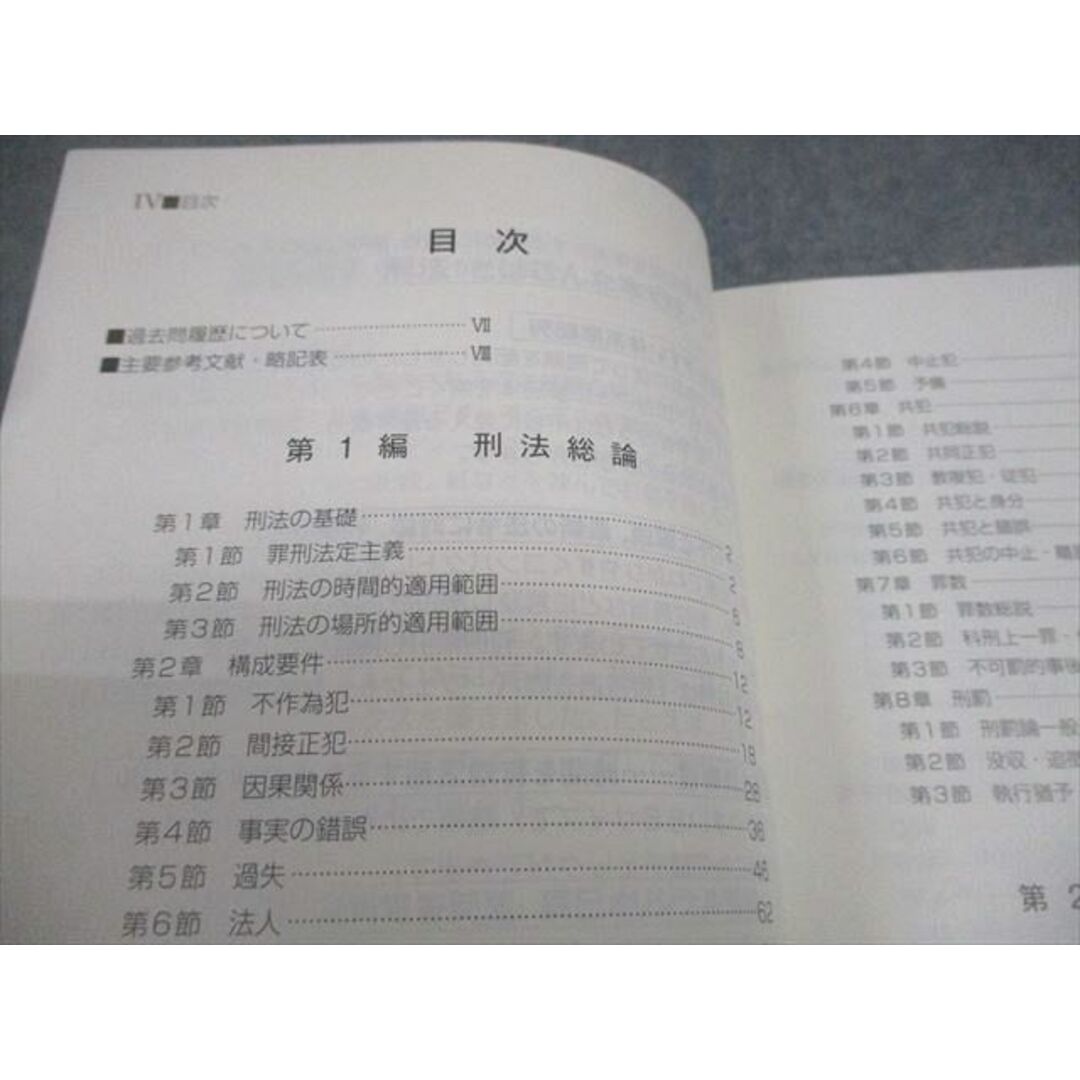 IV■目次
目 次
■過去問履歴について Ⅶ
■主要参考文献・略記表 Ⅷ
第1編 刑法総論
第1章 刑法の基礎 2
第1節 罪刑法定主義 2
第2節 刑法の時間的適用範囲 6
第3節 刑法の場所的適用範囲 8
第2章 構成要件 12
第1節 不作為犯 12
第2節 間接正犯 18
第3節 因果関係 28
第4節 事実の錯誤 36
第5節 過失 46
第6節 法人 62
第4節 中止犯
第5節 予備
第6章 共犯
第1節 共犯総説
第2節 共同正犯
第3節 教唆犯・従犯
第4節 共犯と身分
第5節 共犯と錯誤
第6節 共犯の中止・離
第7章 罪数
第1節 罪数総説
第2節 科刑上一罪・
第3節 不可罰的事後
第8章 刑罰
第1節 刑罰論一般
第2節 没収・追徴
第3節 執行猶予
第 2